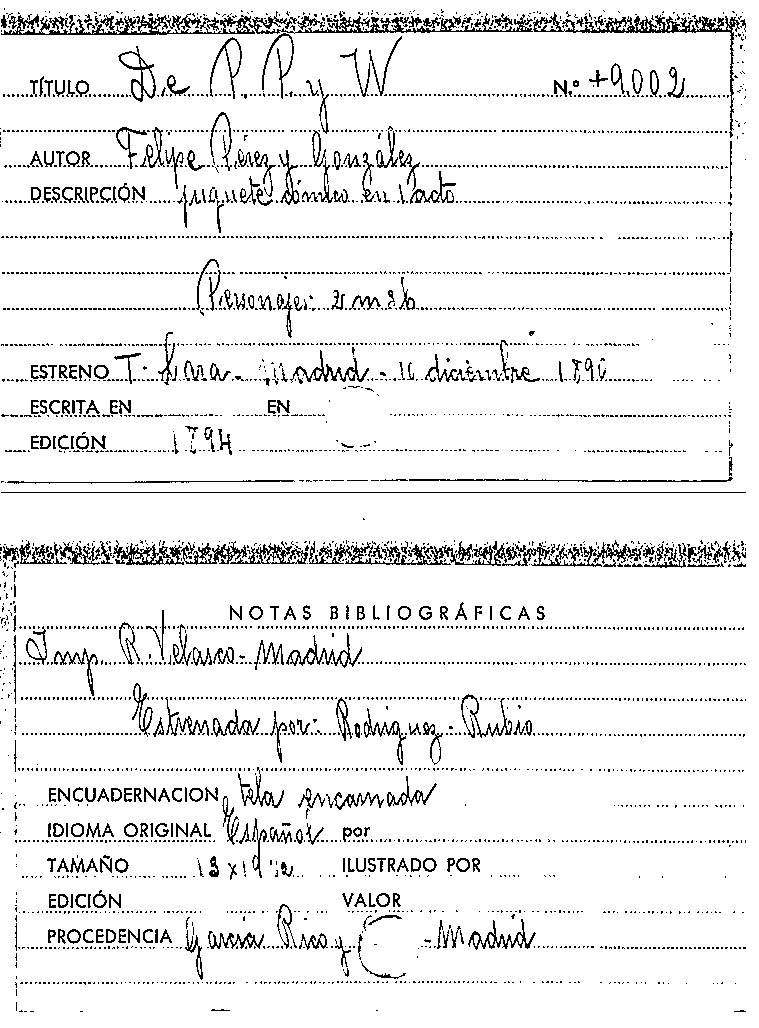 TÍTULO De P. P. y W N.º +9.002
AUTOR Felipe Pérez y González
DESCRIPCIÓN juguete cómico en 1 acto
Personajes: 2 m 3 h
ESTRENO T. Lara - Madrid - diciembre 189
ESCRITA EN EN
EDICIÓN 1894
NOTAS BIBLIOGRÁFICAS
Imp. R. Velasco - Madrid
Estrenada por: Rodriguez - Rubio
ENCUADERNACION tela encarnada
IDIOMA ORIGINAL Español por
TAMAÑO 13 x 19 1/2 ILUSTRADO POR
EDICIÓN VALOR
PROCEDENCIA García Rico y - Madrid